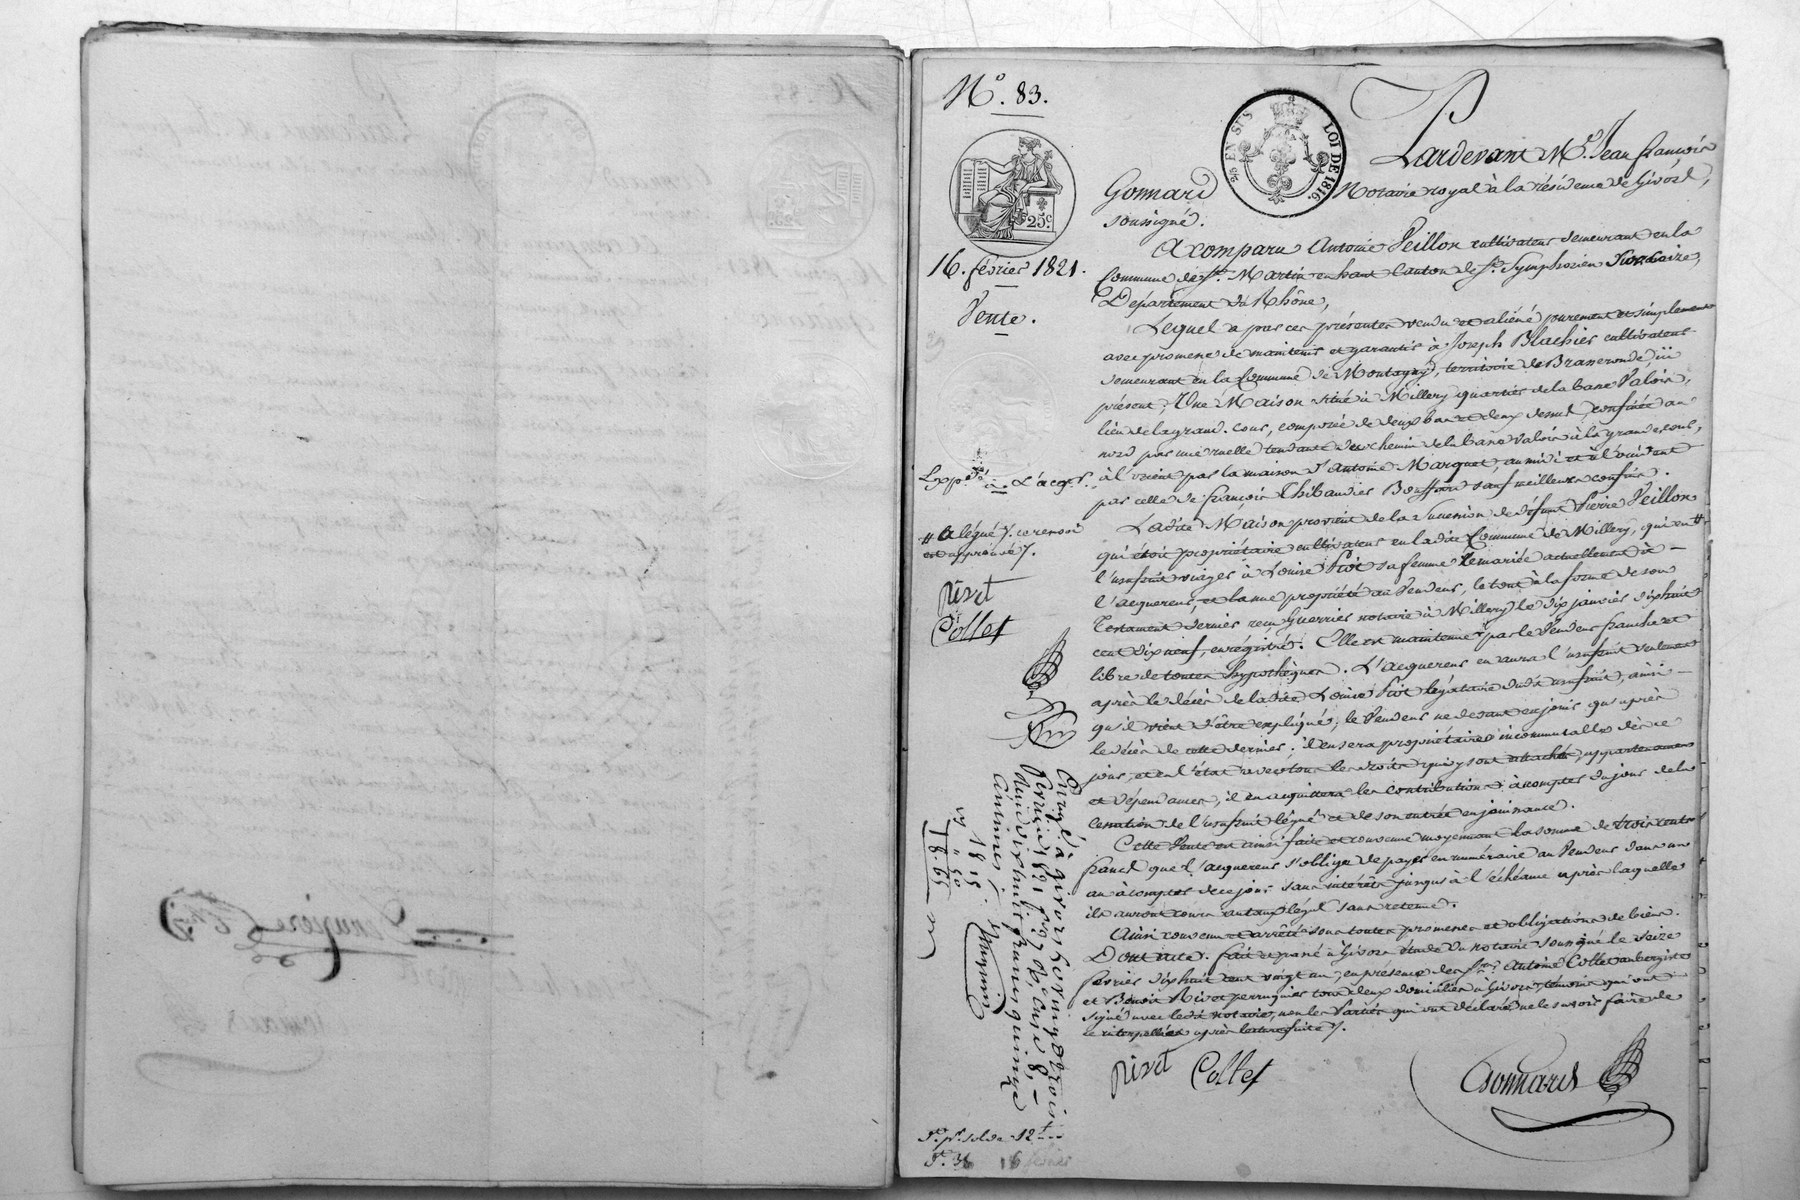 N.° 83.
EN SUS
LOI DE 1816.
25c
16. février 1821.
Vente.
Pardevant M.e Jean françois
Gonnard Notaire royal à la résidence de Givors,
soussigné.
A comparu Antoine Peillon cultivateur demeurant en la
Commune de St. Martin en haut Canton de St. Symphorien
Département du Rhône,
Lequel a par ces présentes vendu et aliéné purement et simplement
avec promesse de maintenir et garantir à Joseph Blachier cultivateur
demeurant en la Commune de Montagny, territoire de Brasseronde, ici
présent, Une Maison située à Millery quartier de la basse Valois,
lieu de la grand. Cour, composée de deux bas et deux dessus, confinée au
nord par une ruelle tendant du chemin de la basse Valois à la grande cour,
à l'orient par la maison d'Antoine Marquet, au midi et à l'occident
par celle de françois Thibaudier Bouffard sauf meilleurs confins.
La dite Maison provient de la Succession de défunt Pierre Peillon
qui étoit propriétaire cultivateur en la dite Commune de Millery, qui en #
l'usufruit viager à Louise Piot sa femme Remariée actuellement à —
l'acquereur, et la nue propriété au Vendeur, le tout à la forme de son
Testament dernier reçu Guerrier notaire à Millery le dix janvier dix huit
cent dix neuf, enrégistré. Elle est maintenue par le Vendeur franche et
libre de toutes hypothèques. L'acquereur en aura l'usufruit seulement
après le décès de la dite Louise Piot légataire dudit usufruit, ainsi —
qu'il vient d'être expliqué; le Vendeur ne devant en jouir qu'après
le décès de cette dernière; il en sera propriétaire incommutable dès ce
jour, et en l'état avec tous les droits qui y sont attachés, appartenances
et dépendances, il en acquittera les contributions à compter du jour de la
cessation de l'usufruit légué et de son entrée en jouissance.
Cette Vente est ainsi faite et convenue moyennant la somme de trois cents
francs que l'acquereur s'oblige de payer en numéraire au Vendeur dans un
an à compter de ce jour sans intérêts jusqu'à l'échéance après laquelle
ils auront cours au taux légal sans retenue.
Ainsi convenu et arrêté sous toutes promesses et obligations de biens.
Dont acte. fait et passé à Givors étude du notaire soussigné le seize
février dix huit cent vingt un, en présence de Srs. Antoine Collet aubergiste
et Benoit Rivet perruquier tous deux domiciliés à Givors, témoins qui ont
signé avec ledit notaire, non les Parties qui ont déclaré ne le savoir faire de
ce interpellées après lecture faite /.
rivet Collet Gonnard
L'expéd.é à L'acq.r
# a légué /. ce renvoi
est approuvé /.
rivet
Collet
Enreg.é à givors le vingt trois
février 1821 f.o 97 R.o Case 8, —
Reçu dix huit francs quinze
centimes /.
18 15
" 50
18.65
16 février